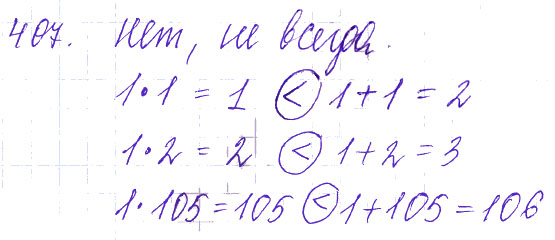 407. Нет, не всегда.
1 • 1 = 1 < 1 + 1 = 2
1 • 2 = 2 < 1 + 2 = 3
1 • 105 = 105 < 1 + 105 = 106